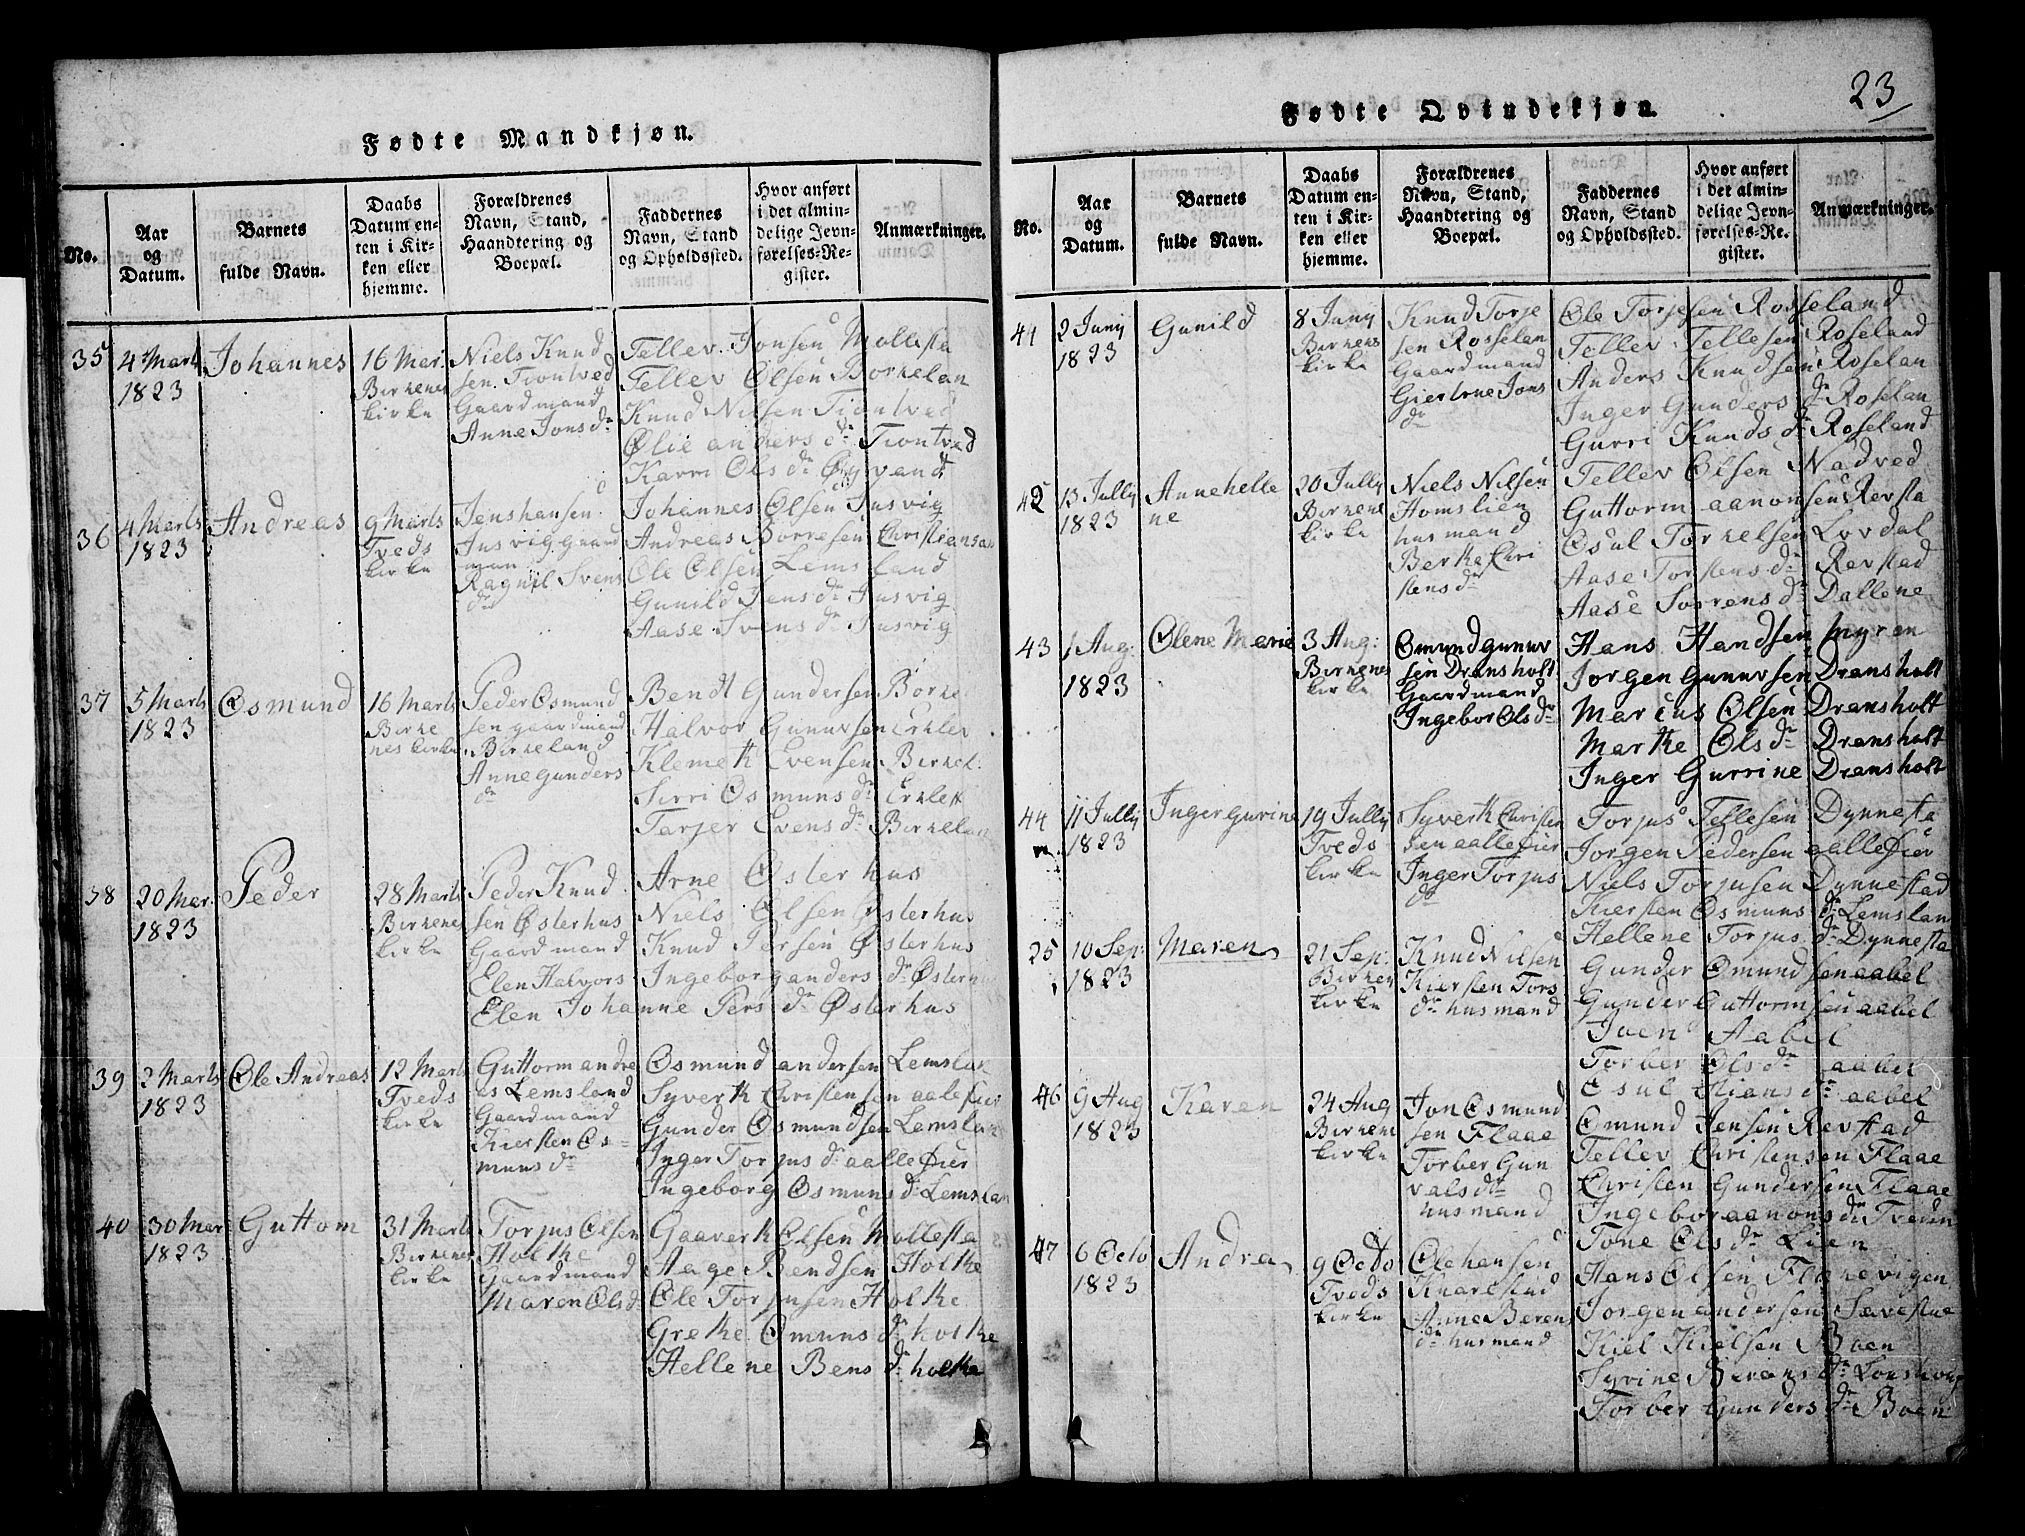 Fødte Mandkjøn.
No.
Aar
og
Datum.
Barnets
fulde Navn.
Daabs
Datum en-
ten i Kir-
ken eller
hjemme.
Forældrenes
Navn, Stand,
Haandtering og
Boepæl.
Faddernes
Navn, Stand
og Opholdssted.
Hvor anført
i det almin-
delige Jevn-
førelses-Re-
gister.
Anmærkninger.
35
4 Marts
1823
Johannes
16 Mar.
Birkenes
kirke
Niels Knud
sen Tiontved
Gaardmand
Anne Jons dr
Tellev Jonsen Mollesta
Tellev Olsen Borkelan
Knud Nilsen Tiontved
Ølie anders dr Tiontved
Karri Ols dr Øgvand
36
4 Marts
1823
Andreas
9 Marts
Tveds
kirke
Jenshansen
Jusvig gaard
man
Ragnil Svens
dr
Johannes Olsen Jusvig
Andreas Borresen Christiansan
Ole Olsen Lemsland
Gunild Jens dr Jusvig
Aase Svens dr Jusvig
37
5 Marts
1823
Osmund
16 Marts
Birke
nes kirke
Peder Osmund
sen gaardmand
Birkeland
Anne gunders
dr
Bendt Gundersen Borke
Halvor Gunuvsen Erklev
Klemeth Evensen Birkel.
Sirri Osmuns dr Erklest
Tarjer Evens dr Birkelan
38
20 Mar.
1823
Peder
28 Marts
Birkenes
kirke
Peder Knud
sen Østerhus
Gaardmand
Elen Halvors
Arne Østerhus
Niels Olsen Østerhus
Knud Persen Østerhus
Ingeborg anders dr Østerhu
Elen Johanne Pers dr Østerhus
39
2 Marts
1823
Ole Andreas
12 Marts
Tveds
kirke
Guttorm andre
as Lemsland
Gaardmand
Kiersten Os-
muns dr
Osmund andersen Lemslan
Syverth Christensen aalefiær
Gunder Osmundsen Lemslan
Inger Torjus dr aallefiær
Ingeborg Osmuns dr Lemslan
40
30 Mar
1823
Guttom
31 Marts
Birkenes
kirke
Torjus Olsen
Holthe
Gaardmand
Maren Ols d
Gaaverth Olsen Mollesta
Aage Bendsen Holthe
Ole Torjusen Holthe
Grethe Omuns dr holthe
Hellene Bens dr holthe
23
Fødte Qvindekjøn.
No.
Aar
og
Datum.
Barnets
fulde Navn.
Daabs
Datum en-
ten i Kir-
ken eller
hjemme.
Forældrenes
Navn, Stand,
Haandtering og
Boepæl.
Faddernes
Navn, Stand
og Opholdssted.
Hvor anført
i det almin-
delige Jevn-
førelses-Re-
gister.
Anmærkninger.
41
2 Junij
1823
Gunild
8 Juny
Birkenes
kirke
Knud Torje
sen Rosselan
Gaardmand
Giertrue Jons
dr
Ole Torjesen Rosseland
Tellev Tellesen Roseland
Anders Knudsen Roselan
Inger Gunders dr Roselan
Gurri Knuds dr Roseland
42
13 Jully
1823
Annehelle
ne
20 Jully
Birkene
kirke
Niels Nilsen
Homslien
husmand
Berthe Chri
stens dr
Tellev Olsen Nadved
Guttorm aanonsen Revsta
Osul Torkelsen Lovdal
Aase Torstens dr Revstad
Aase Sorrens dr Dallene
43
1 Aug.
1823
Olene Marie
3 Aug:
Birkenes
kirke
Omund gunuv
sen Dransholt
Gaardmand
Ingebor Ols dr
Hans Handsen Myren
Jorgen gunuvsen Dransholt
Marcus Olsen Dransholt
Marthe Ols dr Dransholt
Inger Gurrine Dransholt
44
11 Jully
1823
Ingergurine
19 Jully
Tveds
kirke
Syverth Christen
sen aallefiær
Inger Torjus
dr
Torjus Tellesen Dynnesta
Jorgen Pedersen aallefiær
Niels Torjusen Dynnestad
Kiersten Osmuns dr Lemslan
Hellene Torjus dr Dynnesta
25
10 Sep:
1823
Maren
21 Sep:
Birkene
kirke
Knud Nilsen
Kiersten Tors
dr husmand
Gunder Omundsen aabel
Gunder Guttormsen aabel
Iven Aabel
Torber Ols dr aabel
Osul Stians dr aabel
46
9 Aug
1823
Karen
24 Aug
Birkene
kirke
Jon Osmund
sen Flaae
Torber Gun
vals dr
husmand
Omund Jensen Revstad
Tellev Christensen Flaae
Christen Gundersen Flaae
Ingebor aanons dr Tveden
Tone Ols dr Lien
47
6 Octo
1823
Andrea
9 Octo
Tveds
kirke
Ole hansen
Knarestad
Anne Berens
dr husmand
Hans Olsen Flakevigen
Jorgen andersen Sævestue
Kiel Kielsen Boen
Syrine Berens dr
Torber Gunders dr Boen